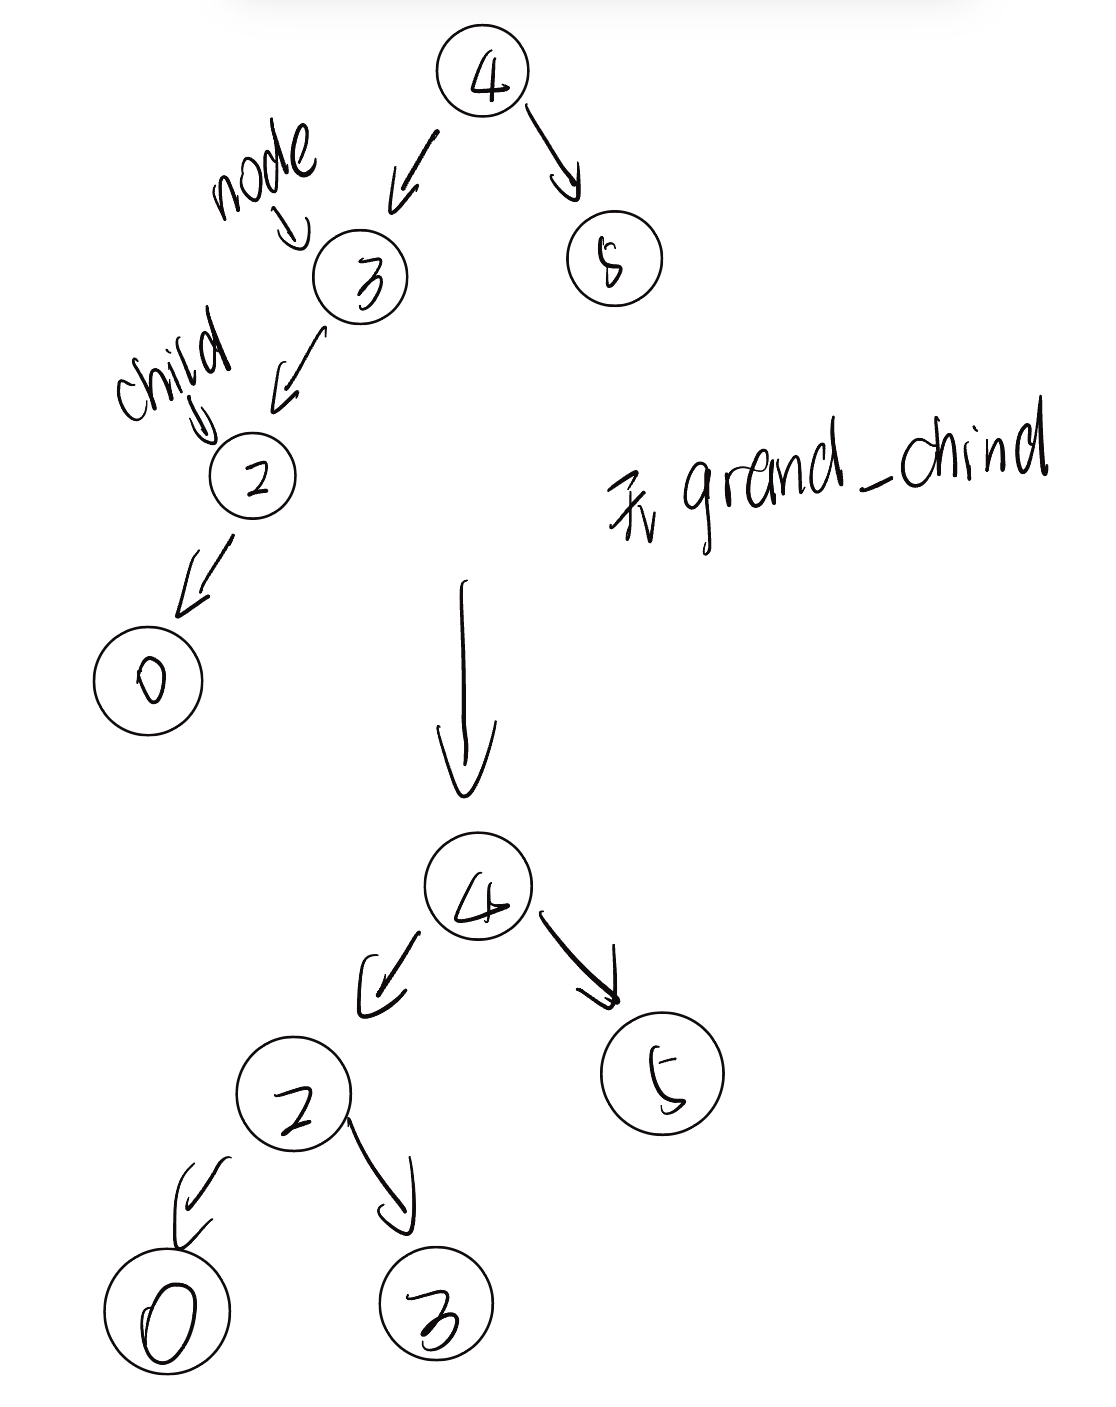 4
node
3
5
child
2
无 grand_chind
0
4
2
5
0
3